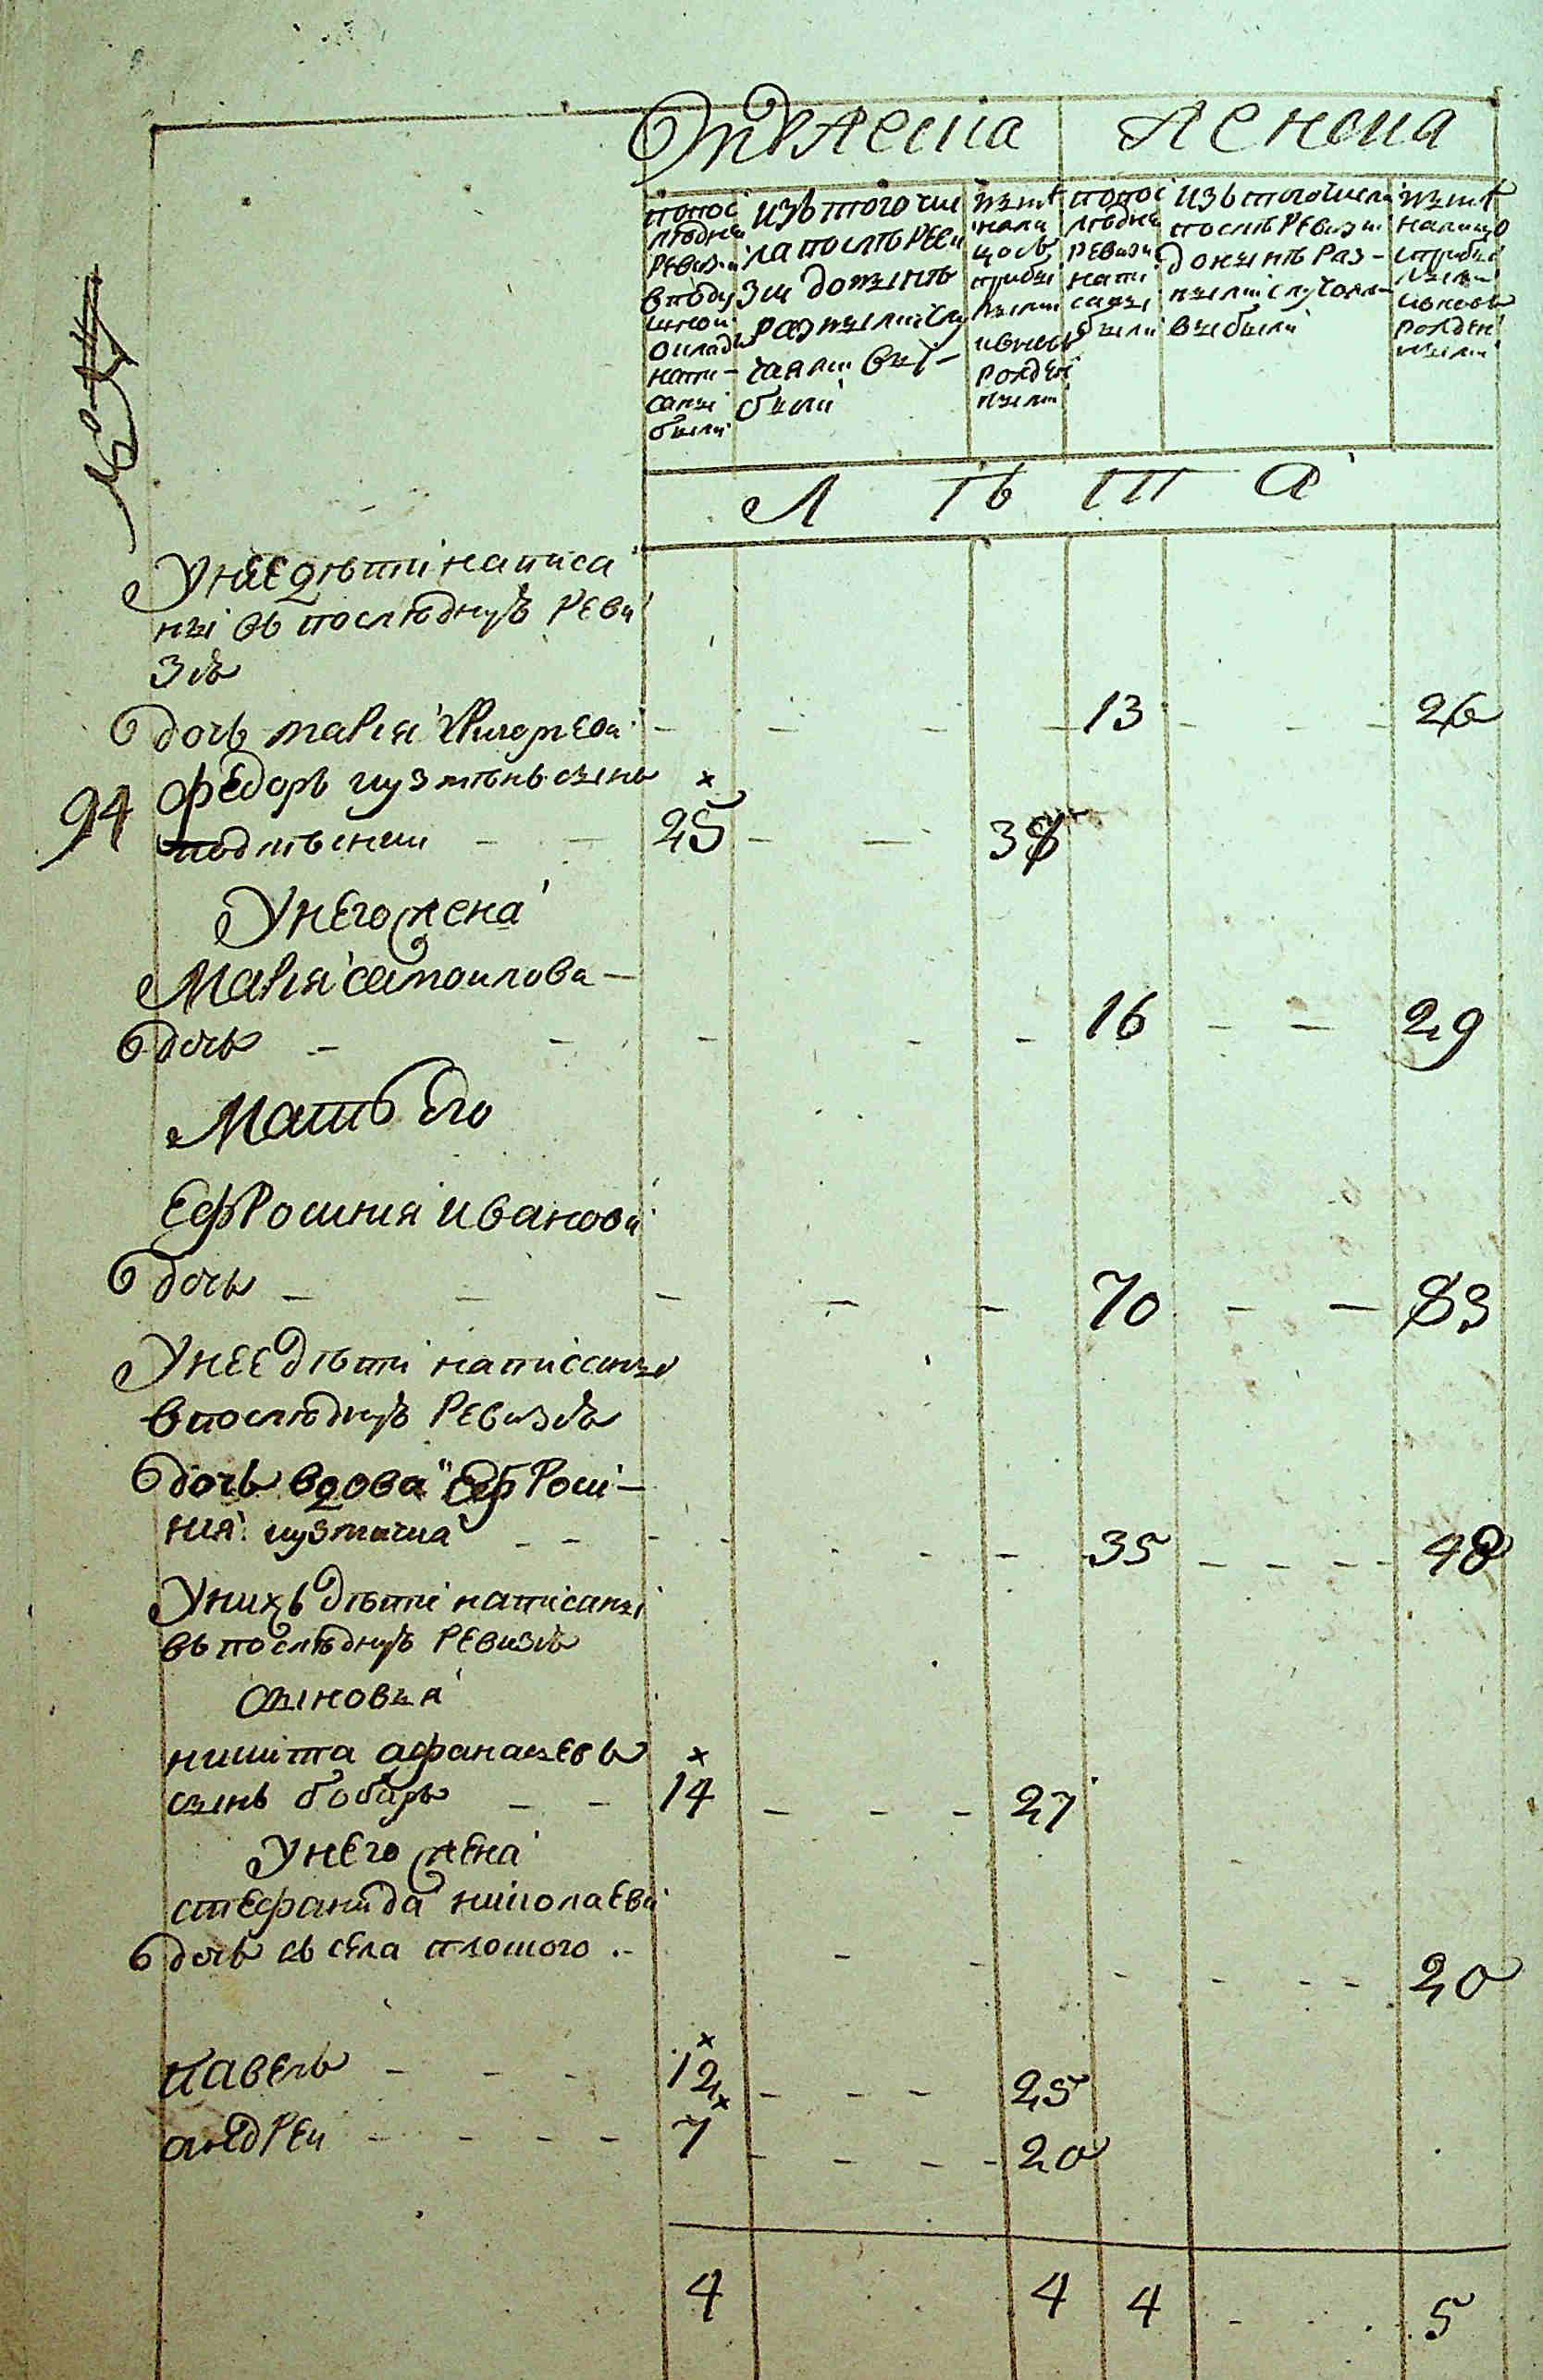 Мужеска Женска
попос
лѣдней
ревизіи
вподу
шной
окладъ
напи-
саны
были
изъ того чи
ла послѣ реви
зіи до ныне
разными слу
чаями вы-
были
ныне
нали
цось
прибы
лыми
ивновь
рожден
ными
попос
лѣдне
ревизи
напи
саны
были
изъ того числа
послѣ ревизи
до ныне раз-
ными случая-
выбыли
ныне
налицо
сприбы
лыми
ивновь
рожден
ными
№
Л ѣ т а
У нее дѣти написа
ны въ послѣднуъ реви
зіѣ
дочь марья григорьева - - - - 13 - - - 26
94 федоръ кузминъ сынъ
- - 25 - - 38
У него жена
Марья самоилова -
дочь - - - - - 16 - - 29
Мать его
Ефросинія иванова
дочь - - - - - 70 - - 83
У нее дѣти написаны
в послѣднуъ ревизіѣ
дочь вдова Ефроси-
нія кузмина - - - - - - - 35 - - - - 48
У нихъ дѣти написаны
въ послѣднуъ ревизіѣ
сыновья
никита афанасьевъ
сынъ бобыръ - - 14 - - - 27
У него жена
стефанида николаева
дочь съ села плоского - - - - - - - 20
павелъ - - - 12 - - - 25
андреи - - - - 7 - - - - 20
4 4 4 - 5